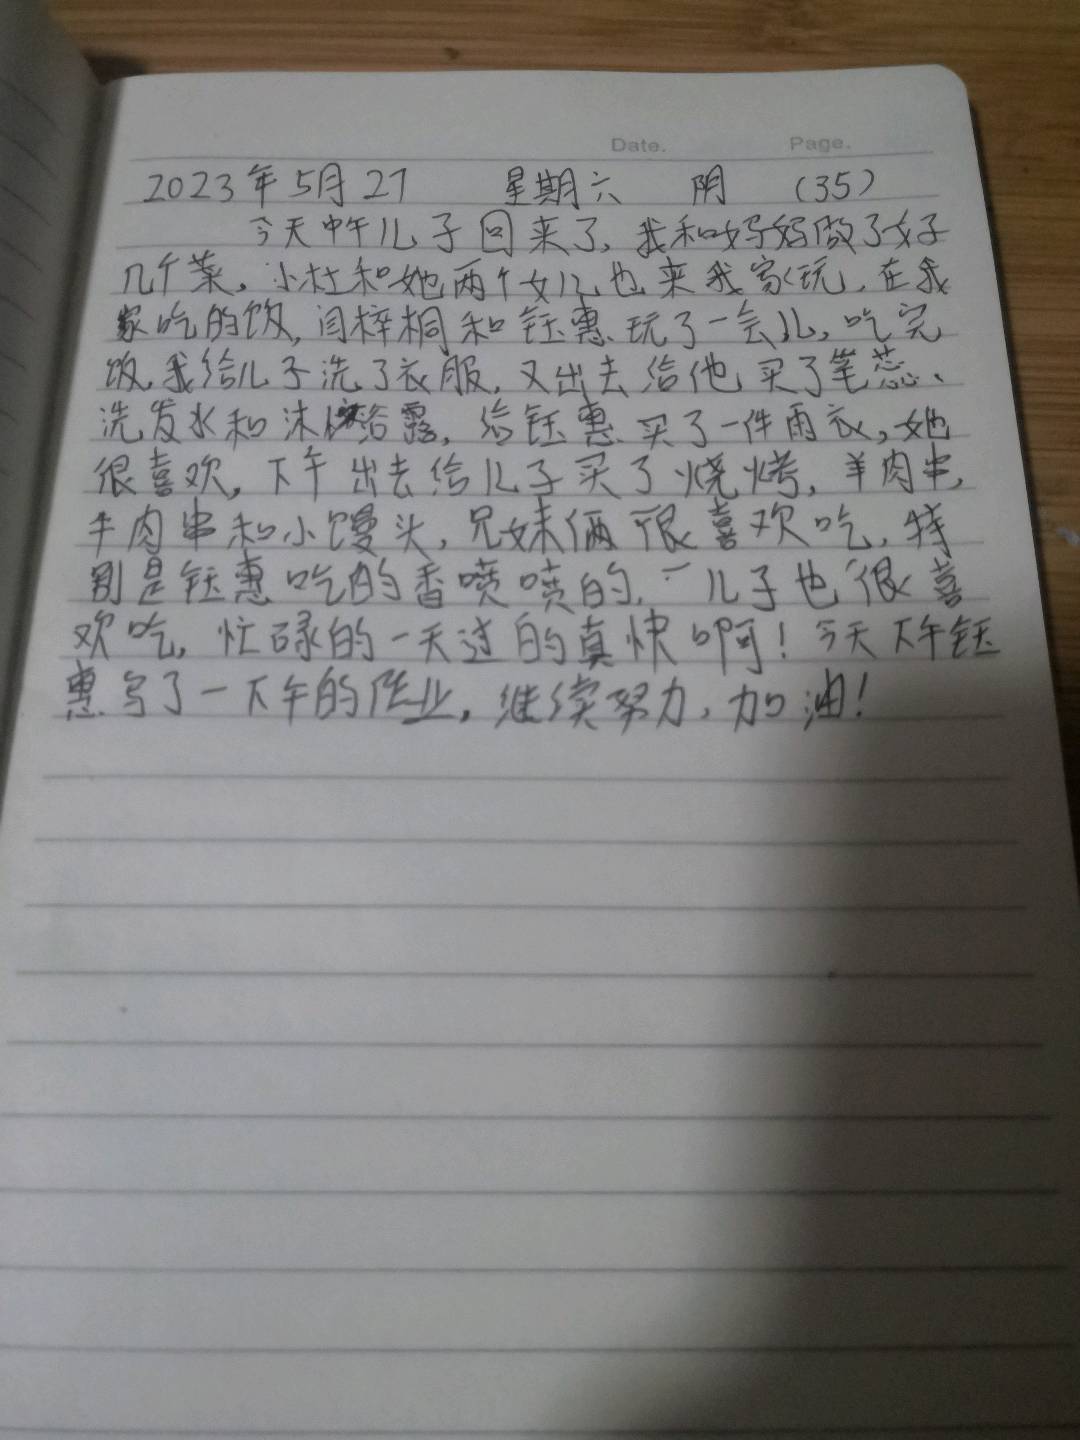 Date. Page.
2023年5月27 星期六 阴 (35)
今天中午儿子回来了,我和妈妈做了好
几个菜。小杜和她两个女儿也来我家玩,在我
家吃的饭,闫梓桐和钰惠玩了一会儿,吃完
饭,我给儿子洗了衣服,又出去给他买了笔蕊、
洗发水和沐浴露,给钰惠买了一件雨衣,她
很喜欢,下午出去给儿子买了烧烤,羊肉串,
牛肉串和小馒头,兄妹俩很喜欢吃,特
别是钰惠吃的香喷喷的,儿子也很喜
欢吃,忙碌的一天过的真快啊!今天下午钰
惠写了一下午的作业,继续努力,加油!